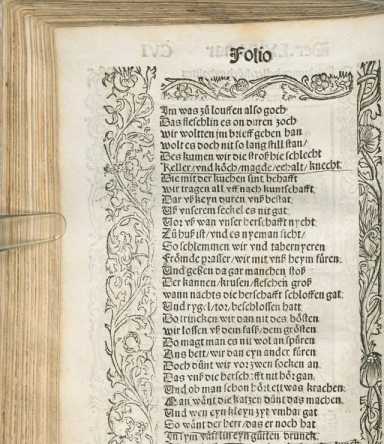 Folio
Im was zů louffen also goch
Das fleschlin es on duren zoch
wir woltten jm brieff geben han
wolt es doch nit so lang still stan/
Des kumen wir die stroß hie schlecht
Keller/vnd köch/magde/eehalt/knecht
Die mit der kuchen sint behafft
wir tragen all vff nach kuntschafft
Dar vß keyn duren vnß bestat
Uß vnserem seckel es nit gat
Vor vß wan vnser herschafft nycht
Zů huß ist/vnd es nyeman sicht/
So schlemmen wir vnd tabernyeren
Frömde prasser/wir mit vnß heym füren
Und geßen da gar manchen stoß
Der kannen/krusen/fleschen groß
wann nachts die herschafft schloffen gat
Und rygel/tor/beschlossen hatt
Do trincken wir dan nit des bösten
wir lossen vß dem faß/dem grösten
Do magt man es nit wol an spüren
Ans bett/wir dan eyn ander füren
Doch důnt wir vor zwen socken an
Das vnß die herschafft nit hör gan
Und ob man schon hört ettwas krachen
Man wänt die katzen dünt das machen
Und wen eyn kleyn zyt vmhar gat
So wänt der herr/das er noch hat
In sym väßlin eyn gütten drunck